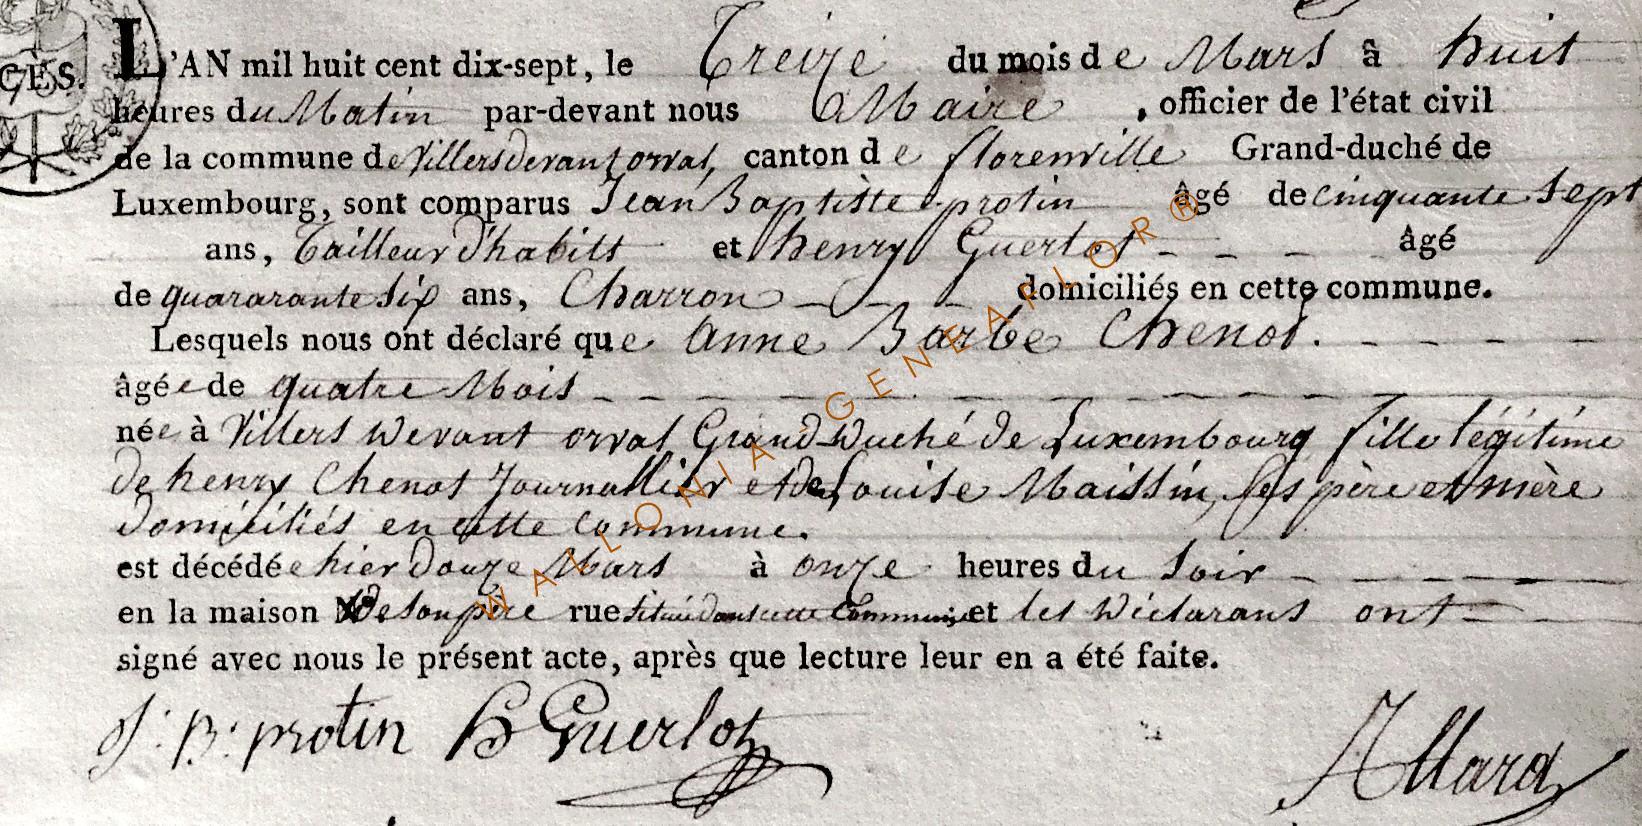 CES.
L'AN mil huit cent dix-sept, le Treize du mois de Mars à huit
heures du Matin par-devant nous Maire, officier de l'état civil
de la commune de Villers devant orval, canton de florenville Grand-duché de
Luxembourg, sont comparus Jean Baptiste protin âgé de cinquante sept
ans, Tailleur d'habits et henry Guerlot - - - - âgé
de quararante six ans, Charron - - - domiciliés en cette commune.
Lesquels nous ont déclaré que Anne Barbe Chenot. - - - -
âgée de quatre Mois - - - -
née à Villers Devant orval Grand Duché de Luxembourg fille légitime
de henry Chenot Journallier et de Louise Maissin, ses père et mère
domiciliés en cette Commune.
est décédée hier douze Mars à onze heures du soir - - - -
en la maison de son père rue située dans cette Commune, et les Déclarans ont
signé avec nous le présent acte, après que lecture leur en a été faite.
J: B: protin H Guerlot Allard
WALLONIA-GENEAFLOR®